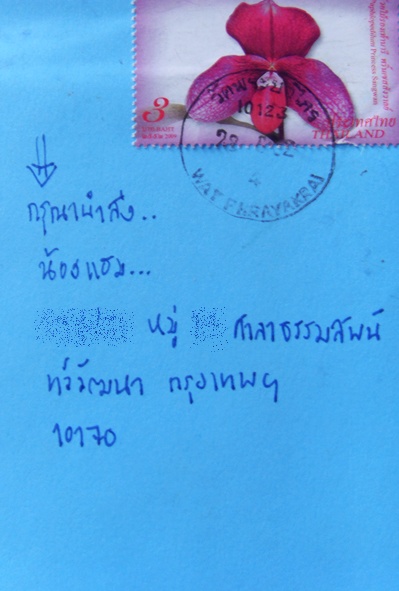 3
ประเทศไทย
THAILAND
10123
WAT PHRAYAKRAI
กรุณานำส่ง..
น้องแชม...
หมู่ ศาลาธรรมสพน์
ทวีวัฒนา กรุงเทพฯ
10170